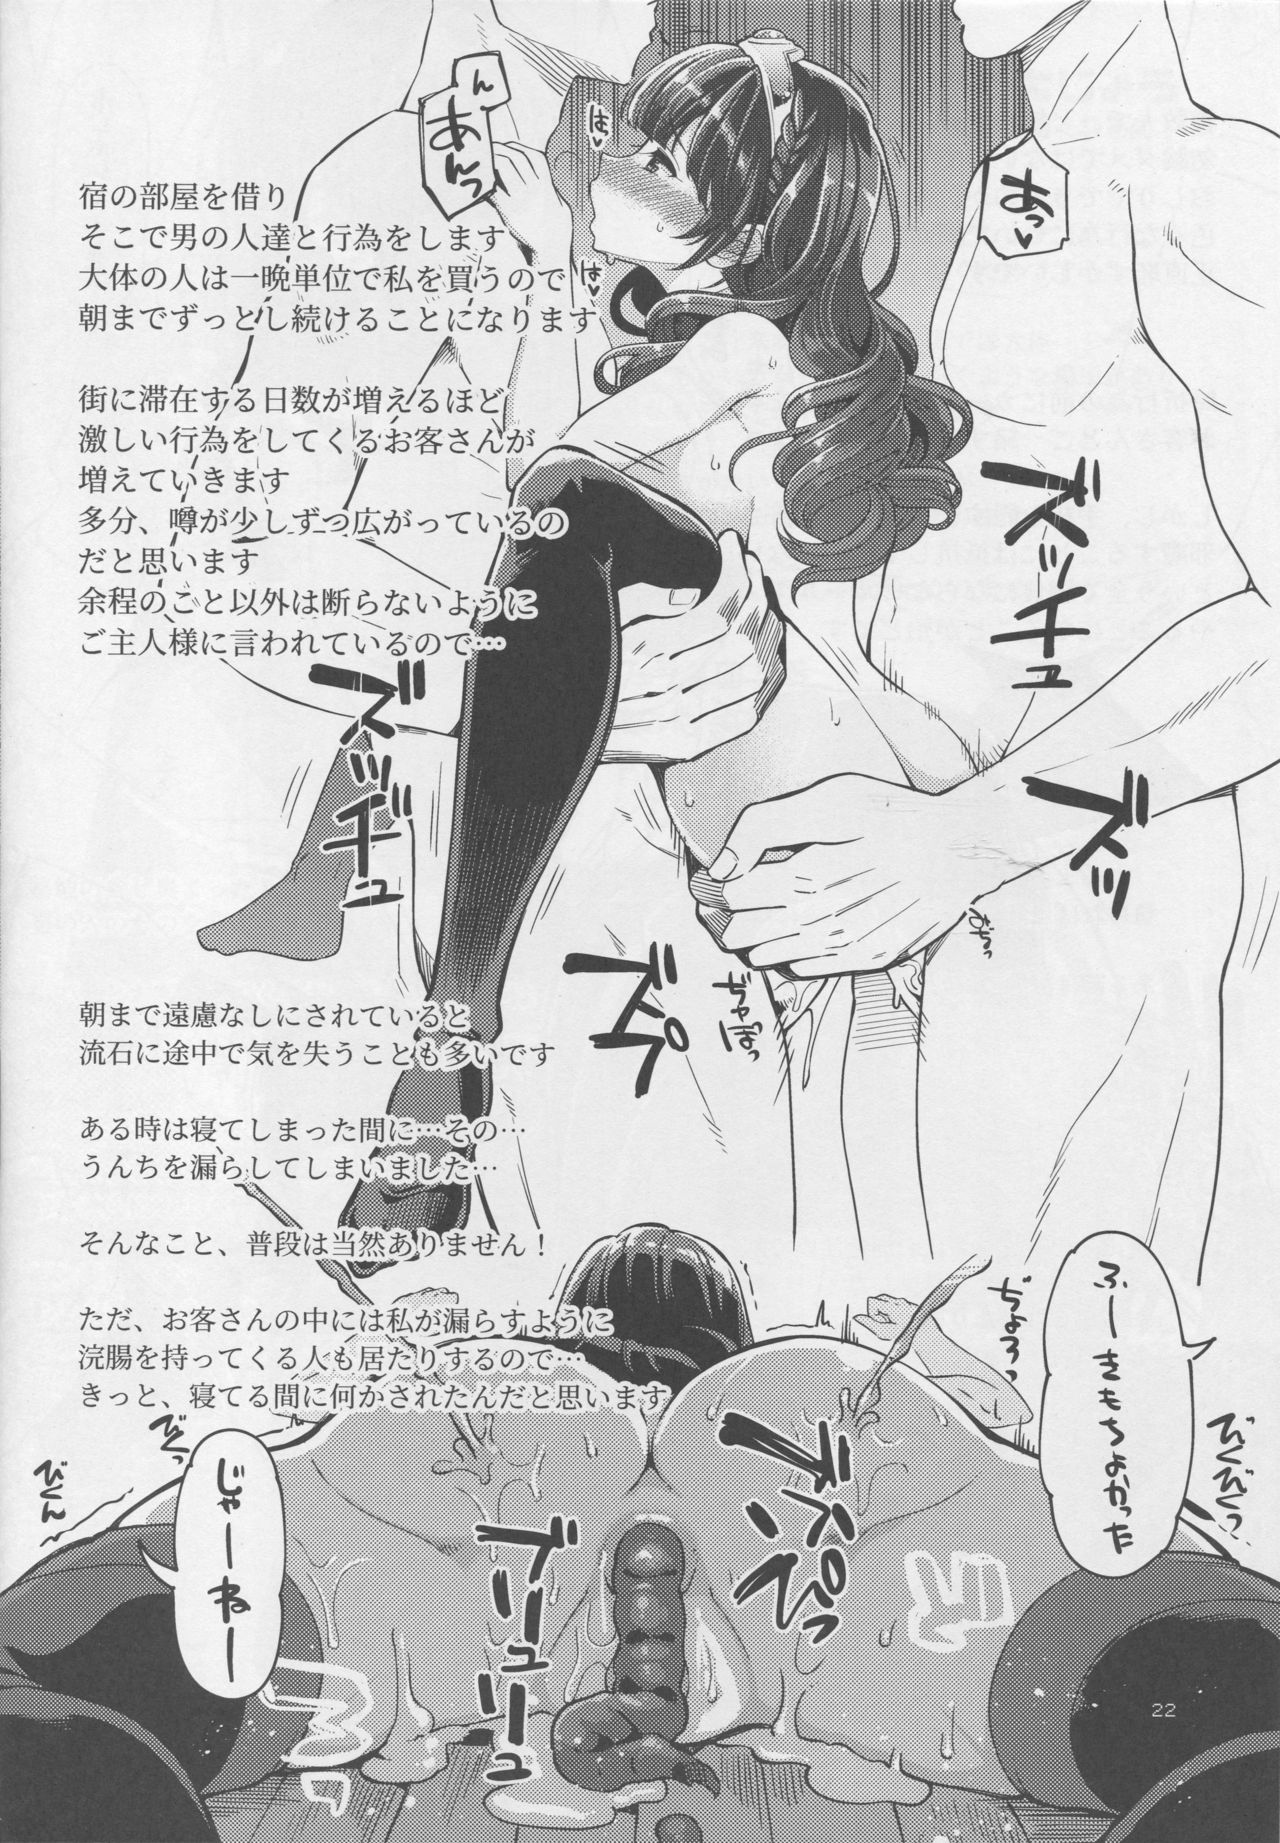 宿の部屋を借り
そこで男の人達と行為をします
大体の人は一晩単位で私を買うので
朝までずっとし続けることになります
街に滞在する日数が増えるほど
激しい行為をしてくるお客さんが
増えていきます
多分、噂が少しずつ広がっているの
だと思います
余程のこと以外は断らないように
ご主人様に言われているので…
朝まで遠慮なしにされていると
流石に途中で気を失うことも多いです
ある時は寝てしまった間に…その…
うんちを漏らしてしまいました…
そんなこと、普段は当然ありません！
ただ、お客さんの中には私が漏らすように
浣腸を持ってくる人も居たりするので…
きっと、寝てる間に何かされたんだと思います
あっ♥
ん
あんっ
はっ♥
はっ♥
ズッチュ
ズッヂュ
ズッ
ズペ
ぢゅぽっ
ふーきもちよかった
じゃーねー
ぢょろっ
びくびくっ
びくっ
びくん～
ブリュリュ
22